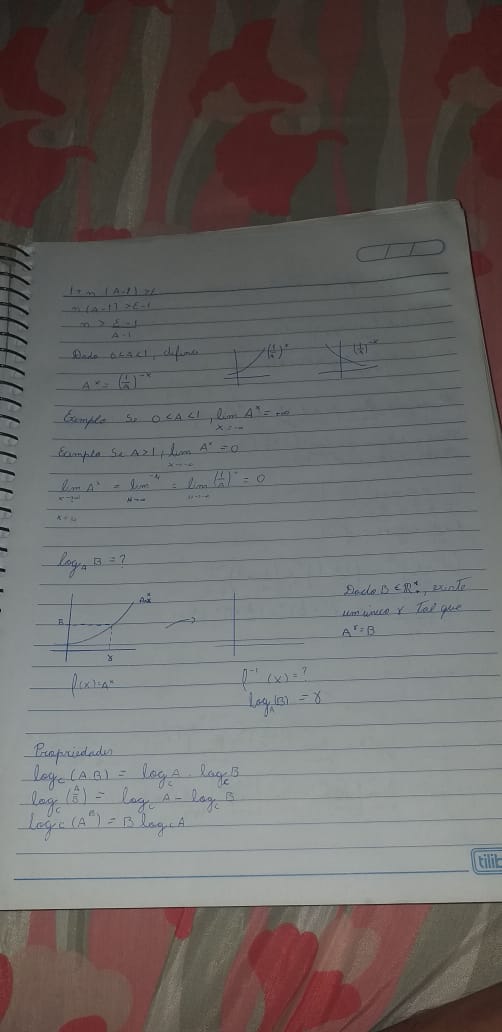 1+n(A-1)>ε
n(A-1)>ε-1
n > ε-1/A-1
Dado 0<A<1, defino
(1/A)^x
(1/A)^-x
A^x = (1/A)^-x
Exemplo Se 0<A<1, lim A^x = +∞
x→-∞
Exemplo Se A>1, lim A^x = 0
x→-∞
lim A^x = lim A^-u = lim (1/A)^u = 0
log_A B = ?
A^x
B
γ
Dado B ∈ ℝ*₊, existe
um único γ tal que
A^γ = B
f(x)=A^x
f^-1(x) = ?
log_A(B) = γ
Propriedades
log_c(A.B) = log_c A . log_c B
log_c(A/B) = log_c A - log_c B
log_c(A^B) = B log_c A
tilib